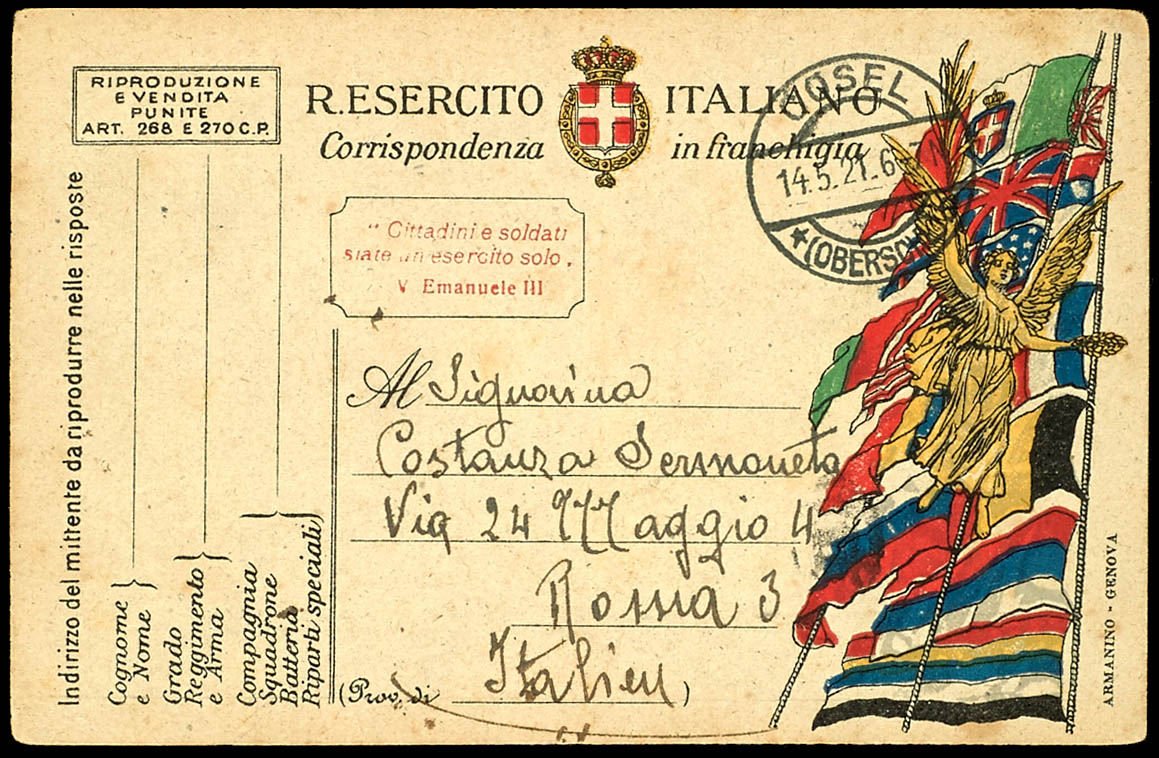 RIPRODUZIONE
E VENDITA
PUNITE
ART. 268 E 270 C.P.
R. ESERCITO ITALIANO
Corrispondenza in franchigia
COSEL
14.5.21.6
(OBERSCH
" Cittadini e soldati
siate un esercito solo .
V Emanuele III
Al Signorina
Costanza Sermoneta
Via 24 Maggio 4
Roma 3
(Prov. di Italien)
Indirizzo del mittente da riprodurre nelle risposte
Cognome
e Nome
Grado
Reggimento
e Arma
Compagnia
Squadrone
Batteria
Riparti speciali
ARMANINO - GENOVA